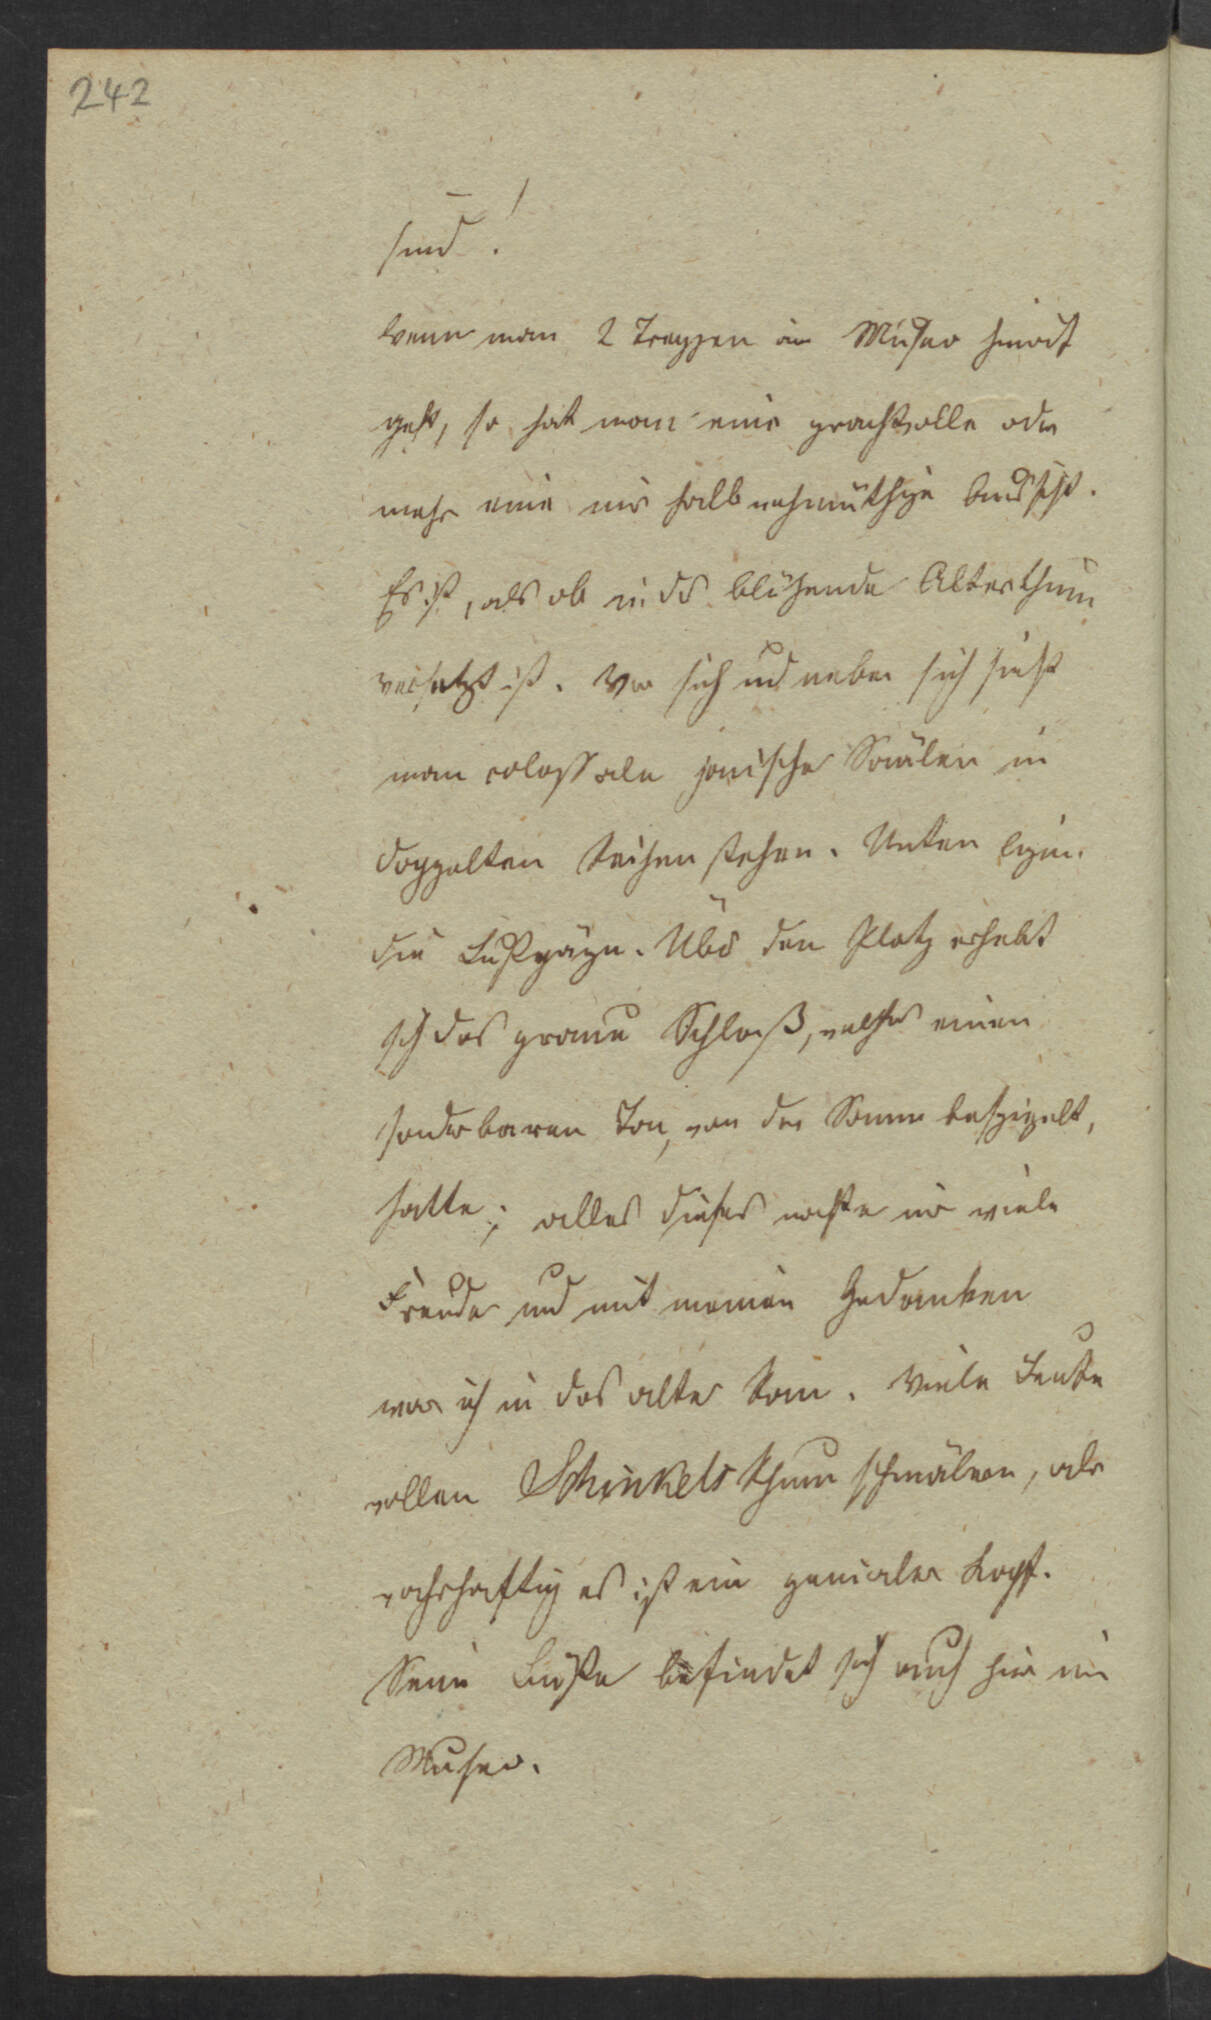 242
sind!
Wenn man 2 Treppen im Museo hinauf
geht, so hat man eine prachtvolle oder
mehr eine mir halb wehmüthige Aussicht.
Es ist, als ob in ds blühende Alterthum
versetzt ist. Vor sich und neben sich sieht
man colossale jonische Säulen in
doppelten Reihen stehen. Unten liegen
die Lustgärten. Über den Platz erhebt
sich das graue Schloß, welches einen
sonderbaren Ton, von der Sonne bespiegelt,
hatte; alles dieses machte mir viele
Freude und mit meinen Gedanken
war ich in das alte Rom. Viele Leute
wollen Schinkels Ruhm schmälern, aber
wahrhaftig es ist ein genialer Kopf.
Seine Büste befindet sich auch hier im
Museo.